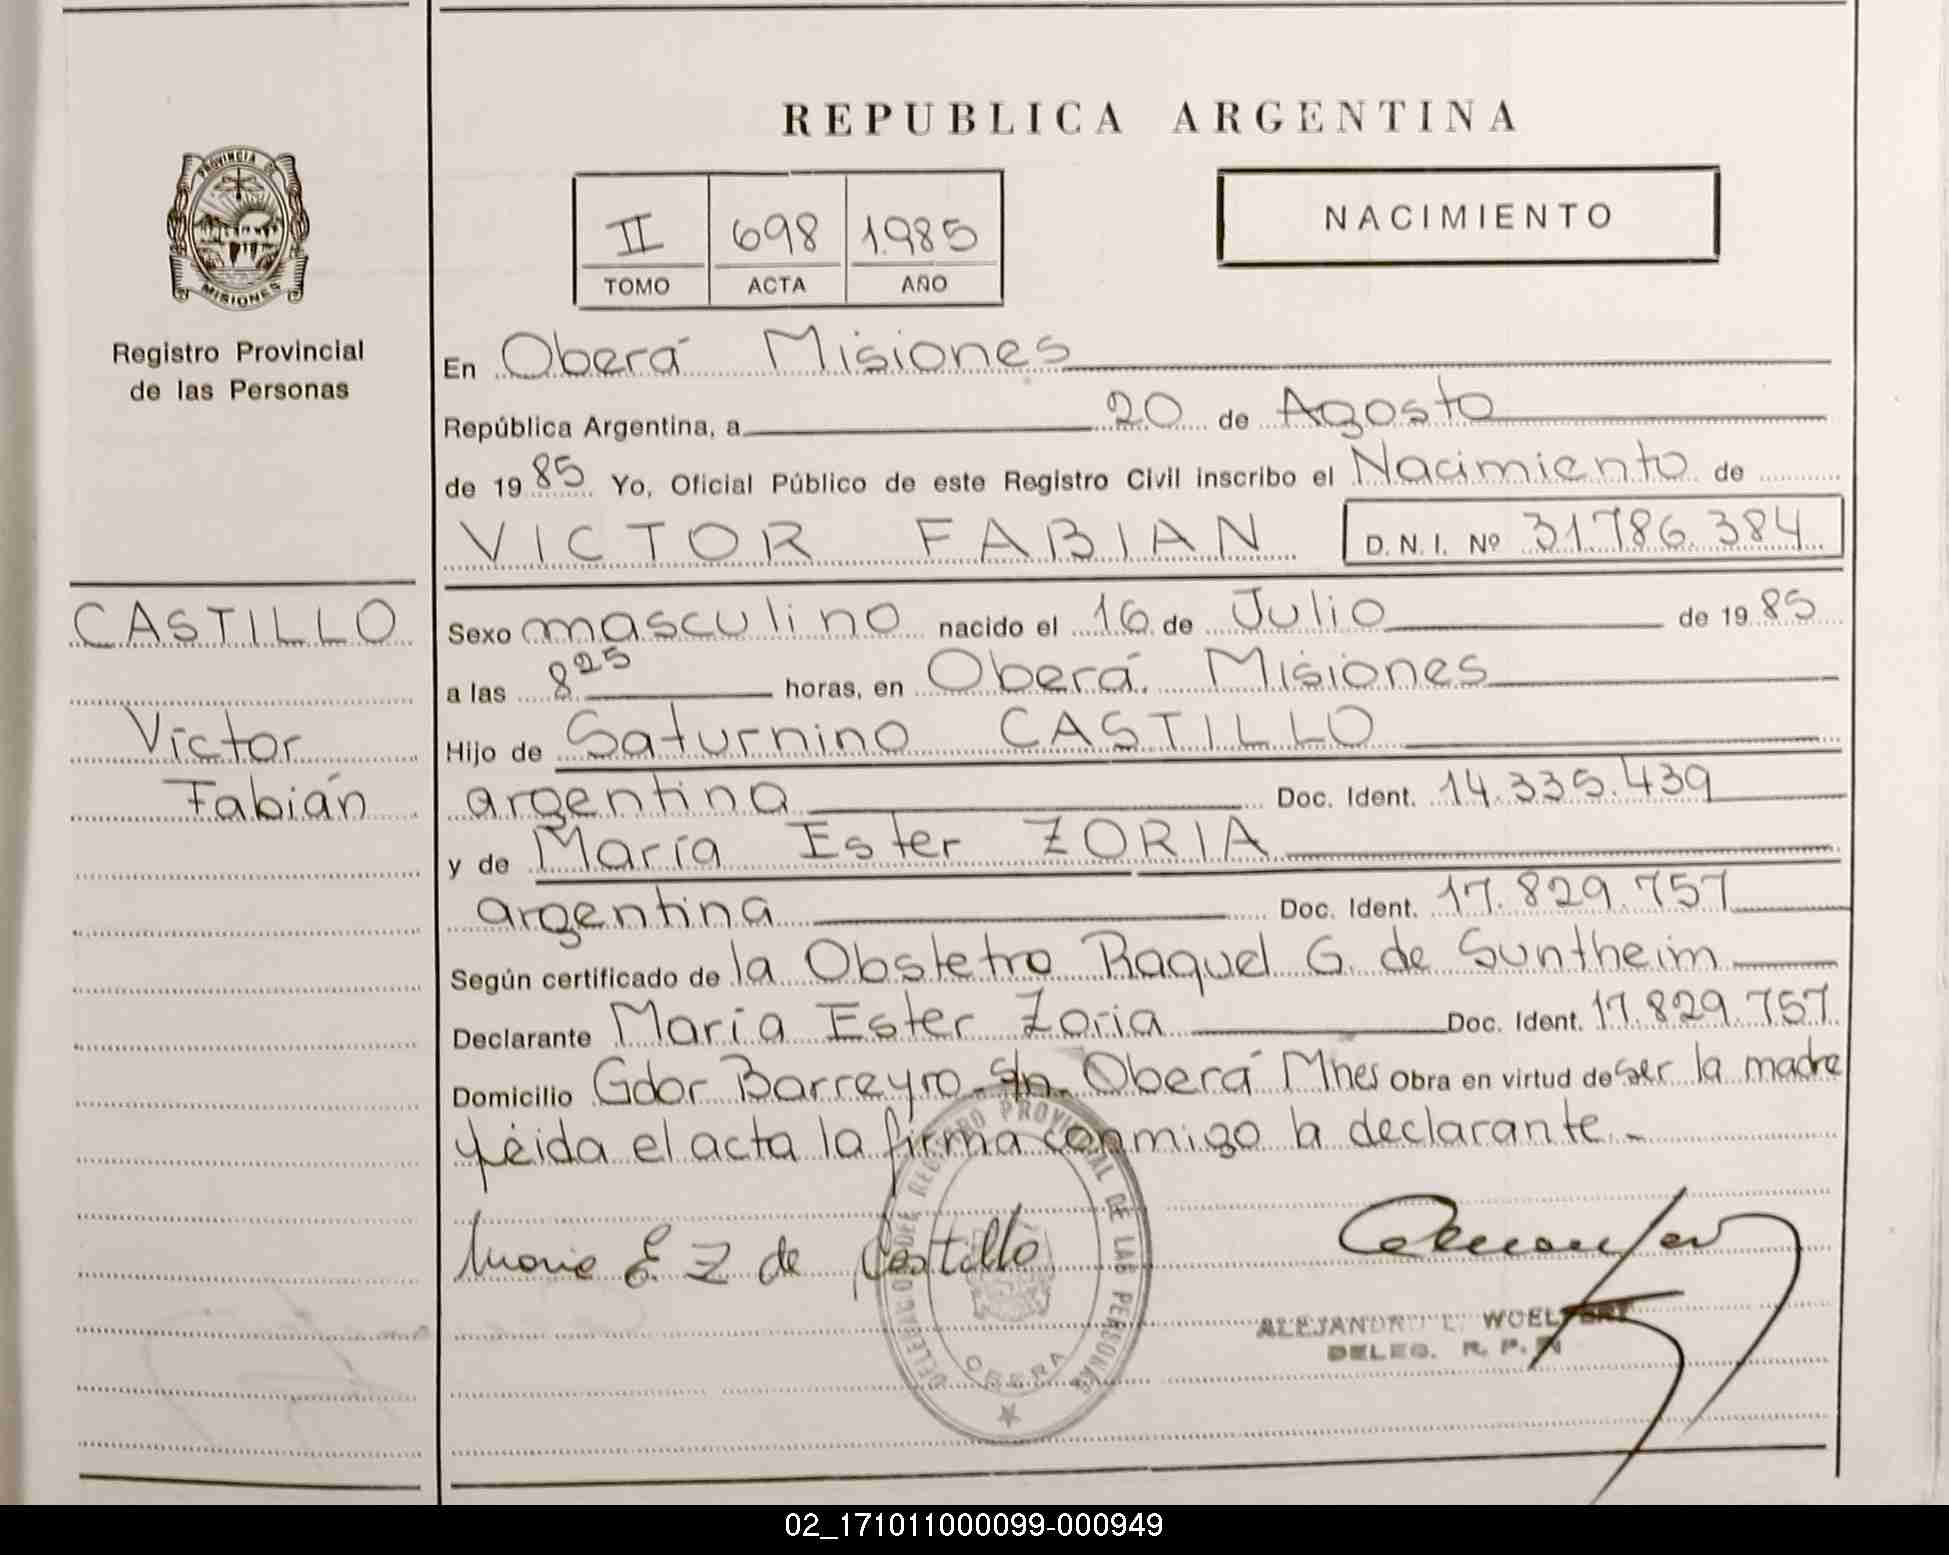 REPUBLICA ARGENTINA
PROVINCIA DE
MISIONES
Registro Provincial
de las Personas
II 698 1.985
TOMO ACTA AÑO
NACIMIENTO
En Oberá Misiones
República Argentina, a 20 de Agosto
de 19 85 Yo, Oficial Público de este Registro Civil inscribo el Nacimiento de
VICTOR FABIAN D.N.I. Nº 31.786.384
CASTILLO
Víctor
Fabián
Sexo masculino nacido el 16 de Julio de 19 85
a las 8 25 horas, en Oberá Misiones
Hijo de Saturnino CASTILLO
argentina Doc. Ident. 14.335.439
y de María Ester ZORIA
argentina Doc. Ident. 17.829.757
Según certificado de la Obstetra Raquel G. de Suntheim
Declarante María Ester Zoria Doc. Ident. 17.829.757
Domicilio Gdor Barreyro S/n. Oberá Mnes Obra en virtud de ser la madre
Leída el acta la firma conmigo la declarante.-
Maria E. Z de Castillo
DELEGADO DEL REGISTRO PROVINCIAL DE LAS PERSONAS
OBERA
ALEJANDRO L.
DELEG. R. P. P.
02_171011000099-000949